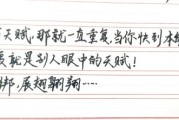 天赋,那就一直重复,当你快到本
就是别人眼中的天赋!
绑,展翅翱翔……